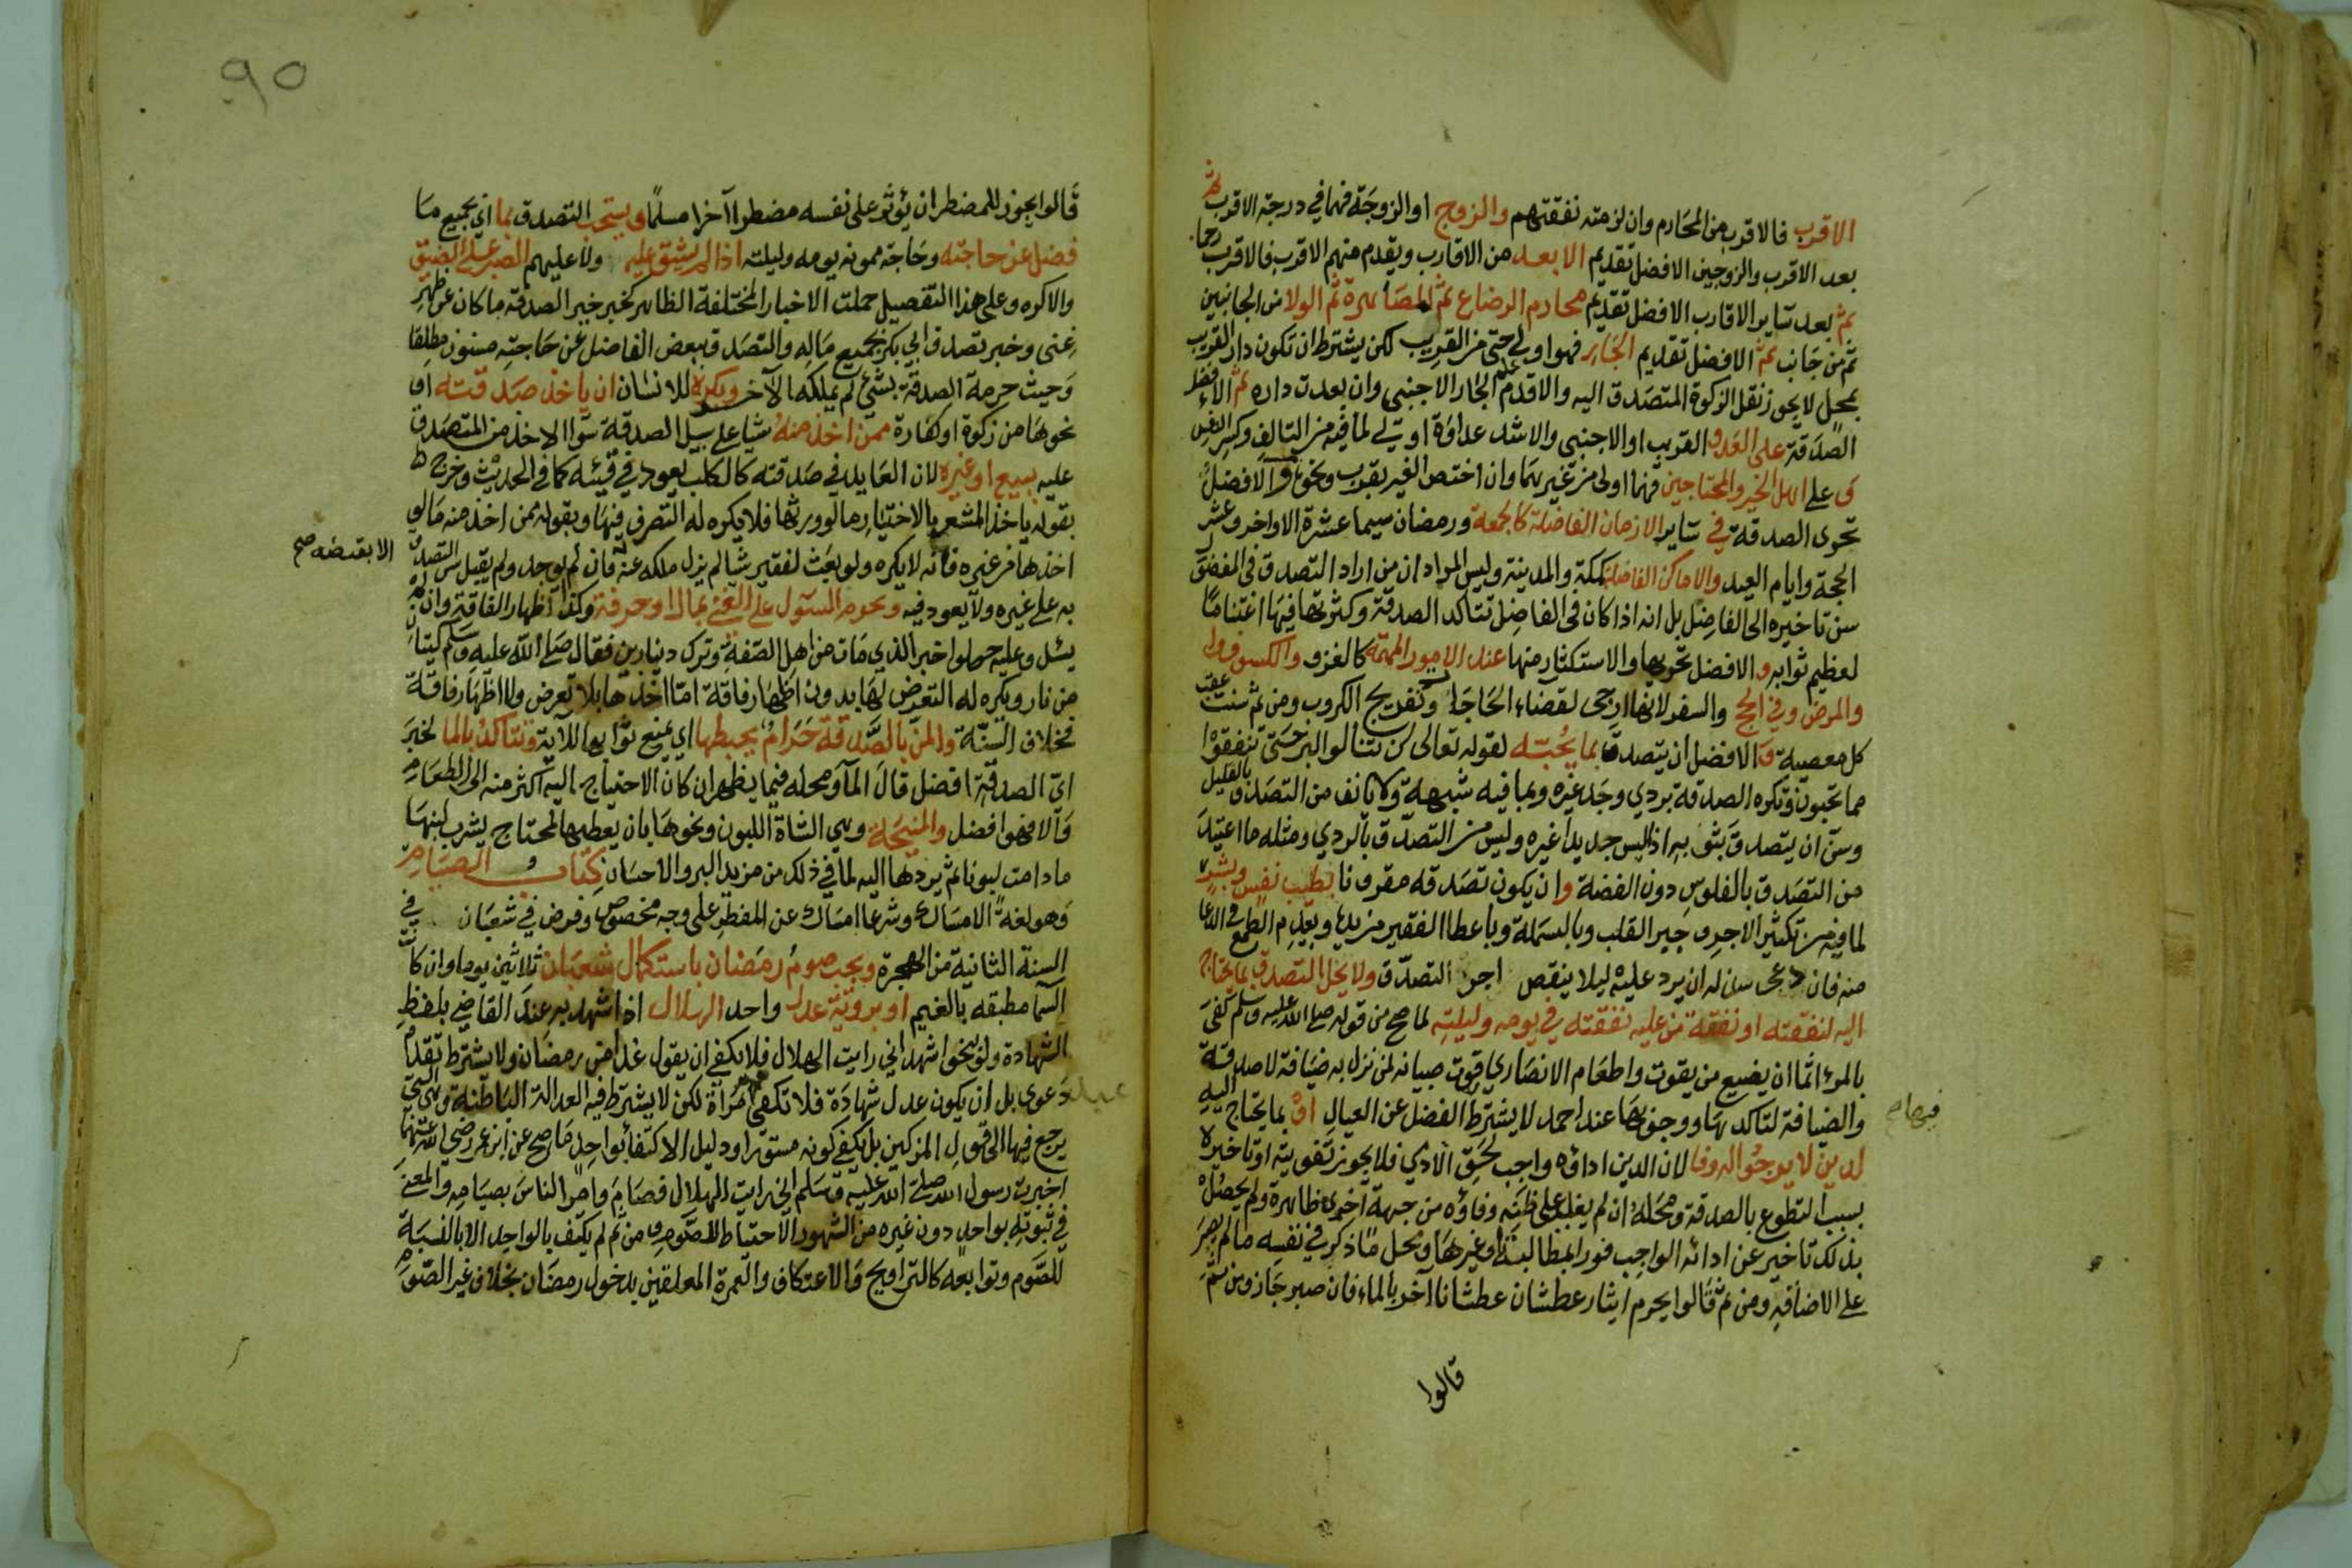 الاقرب فالاقرب من المحارم وان لزمته نفقتهم والزوج او الزوجة فهما في درجة الاقرب ثم
بعد الاقرب والزوجين الافضل تقديم الابعد من الاقارب ويقدم منهم الاقرب فالاقرب رحما
ثم بعد ساير الاقارب الافضل تقديم محارم الرضاع ثم المصاهرة ثم الولا من الجانبين
ثم من جانب ثم الافضل تقديم الجار فهو اولى حتى من القريب لكن يشترط ان تكون دار القريب
بمحل لا يجوز نقل الزكوة المتصدق اليه والاقدم الجار الاجنبي وان بعدت داره ثم الافضل
الصدقة على العدو القريب او الاجنبي والاشد عداوة اولى لما فيه من التالف وكسر النفس
و على اهل الخير والمحتاجين فهما اولى من غيرهما وان اختص الغير بقرب ونحوه و الافضل
تحرى الصدقة في ساير الازمان الفاضلة كالجمعة ورمضان سيما عشرة الاواخر وعشر
الحجة وايام العيد والاماكن الفاضلة كمكة والمدينة وليس المراد ان من اراد التصدق في المفضول
سن تاخيره الى الفاضل بل انه اذا كان في الفاضل تتاكد الصدقة وكثرتها فيها اغتناما
لعظيم ثوابه و الافضل تحريها والاستكثار منها عند الامور المهمة كالغزو والكسوف
والمرض وفي الحج والسفر لانها ارجى لقضاء الحاجات وتفريج الكروب ومن ثم سنت عقب
كل معصية و الافضل ان يتصدق بما يحبه لقوله تعالى لن تنالوا البر حتى تنفقوا
مما تحبون وتكره الصدقة بردي وجد غيره وبما فيه شبهة ولا يانف من التصدق بالقليل
وسن ان يتصدق بثوبه اذا لبس جديدا غيره وليس من التصدق بالردي ومثله ما اعتيد
من التصدق بالفلوس دون الفضة و ان يكون تصدقه مقرونا بطيب نفس وبشر
لما فيه من تكثير الاجر و جبر القلب وبالبسملة وباعطا الفقير من يده وبعدم الطمع في الدعا
منه فان دعى سن له ان يرد عليه ليلا ينقص اجر التصدق ولا يحل التصدق بما يحتاج
اليه لنفقته او نفقة من عليه نفقته في يومه وليلته لما صح من قوله صلى الله عليه وسلم كفى
بالمرء اثما ان يضيع من يقوت واطعام الانصاري قوت صبيانه لمن نزل به ضيافة لا صدقة
والضيافة لتاكدها ووجوبها عند احمد لا يشترط الفضل عن العيال او بما يحتاج اليه
فيها صح
لدين لا يرجو اله وفا لان الدين اداؤه واجب لحق الادمي فلا يجوز تفويته او تاخيره
بسبب التطوع بالصدقة ومحله ان لم يغلب على ظنه وفاؤه من جهة اخرى ظاهرة ولم يحصل
بذلك تاخير عن ادائه الواجب فورا بمطالبة او غيرها ويحل ما ذكر في نفسه ما لم يصبر
على الاضاقة ومن ثم قالوا يحرم ايثار عطشان عطشانا اخر بالماء فان صبر جاز ومن ثم
قالوا
٩٥
قالوا يجوز للمضطر ان يؤثر على نفسه مضطرا آخر مسلما و يستحب التصدق بما اي بجميع ما
فضل عن حاجته وحاجة ممونه يومه وليلته اذا لم يشق عليه ولا عليهم الصبر على الضيق
والا كره وعلى هذا التفصيل حملت الاخبار المختلفة الظاهر كخبر خير الصدقة ما كان عن ظهر
غنى وخبر تصدق ابي بكر بجميع ماله والتصدق ببعض الفاضل عن حاجته مسنون مطلقا
وحيث حرمة الصدقة بشئ لم يملكه الآخذ ويكره للانسان ان ياخذ صدقته او
نحوها من زكوة او كفارة ممن اخذ منه شيا على سبيل الصدقة سوا الاخذ من المتصدق
عليه ببيع او غيره لان العايد في صدقته كالكلب يعود في قيئه كما في الحديث وخرج
بقوله ياخذ المشعر بالاختيار ما لو ورثها فلا يكره له التصرف فيها وبقوله ممن اخذ منه ما لو
اخذها من غيره فانه لا يكره ولو بعث لفقير شيا لم يزل ملكه عنه فان لم يوجد ولم يقبل سن التصدق
الا بقبضه صح
به على غيره ولا يعود فيه ويحرم السؤل على الغني بمال او حرفة وكذا اظهار الفاقة وان لم
يسئل وعليه حملوا خبر الذي مات من اهل الصفة وترك دينارين فقال صلى الله عليه وسلم كيتان
من نار ويكره له التعرض لها بدون اظهار فاقة اما اخذها بلا تعرض ولا اظهار فاقة
فخلاف السنة والمن بالصدقة حرام يحبطها اي يمنع ثوابها للآية وتتاكد بالما لخبر
اي الصدقة افضل قال الما ومحله فيما يظهر ان كان الاحتياج اليه اكثر منه الى الطعام
والا فهو افضل والمنيحة وهي الشاة اللبون ونحوها بان يعطيها لمحتاج يشرب لبنها
ما دامت لبونا ثم يردها اليه لما في ذلك من مزيد البر والاحسان كتاب الصيام
وهو لغة الامساك وشرعا امساك عن المفطر على وجه مخصوص وفرض في شعبان في
السنة الثانية من الهجرة ويجب صوم رمضان باستكمال شعبان ثلاثين يوما وان كانت
السما مطبقه بالغيم او بروية عدل واحد الهلال اذا شهد به عند القاضي بلفظ
الشهادة ولو بنحو اشهد اني رايت الهلال فلا يكفي ان يقول غدا من رمضان ولا يشترط تقدم
دعوى بل ان يكون عدل شهادة فلا تكفي امرأة لكن لا يشترط فيه العدالة الباطنة وهي التي
يرجع فيها الى قول المزكين بل يكفي كونه مستورا ودليل الاكتفا بواحد ما صح عن ابن عمر رضي الله عنهما
اخبرت رسول الله صلى الله عليه وسلم اني رايت الهلال فصام وامر الناس بصيامه والمعنى
في ثبوته بواحد دون غيره من الشهود الاحتياط للصوم ومن ثم لم يكتف بالواحد الا بالنسبة
للصوم وتوابعه كالتراويح والاعتكاف والعمرة المعلقين بدخول رمضان بخلاف غير الصوم